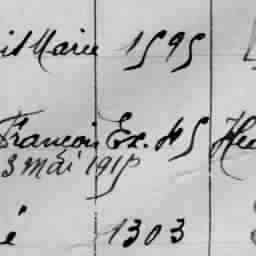 it Marie 1595
François Ex. 45 He
3 Mai 1915
é 1303